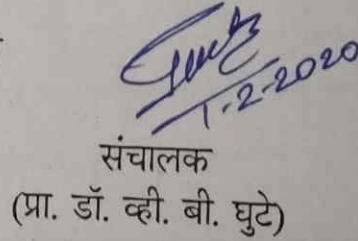 1-2-2020
संचालक
(प्रा. डॉ. व्ही. बी. घुटे)